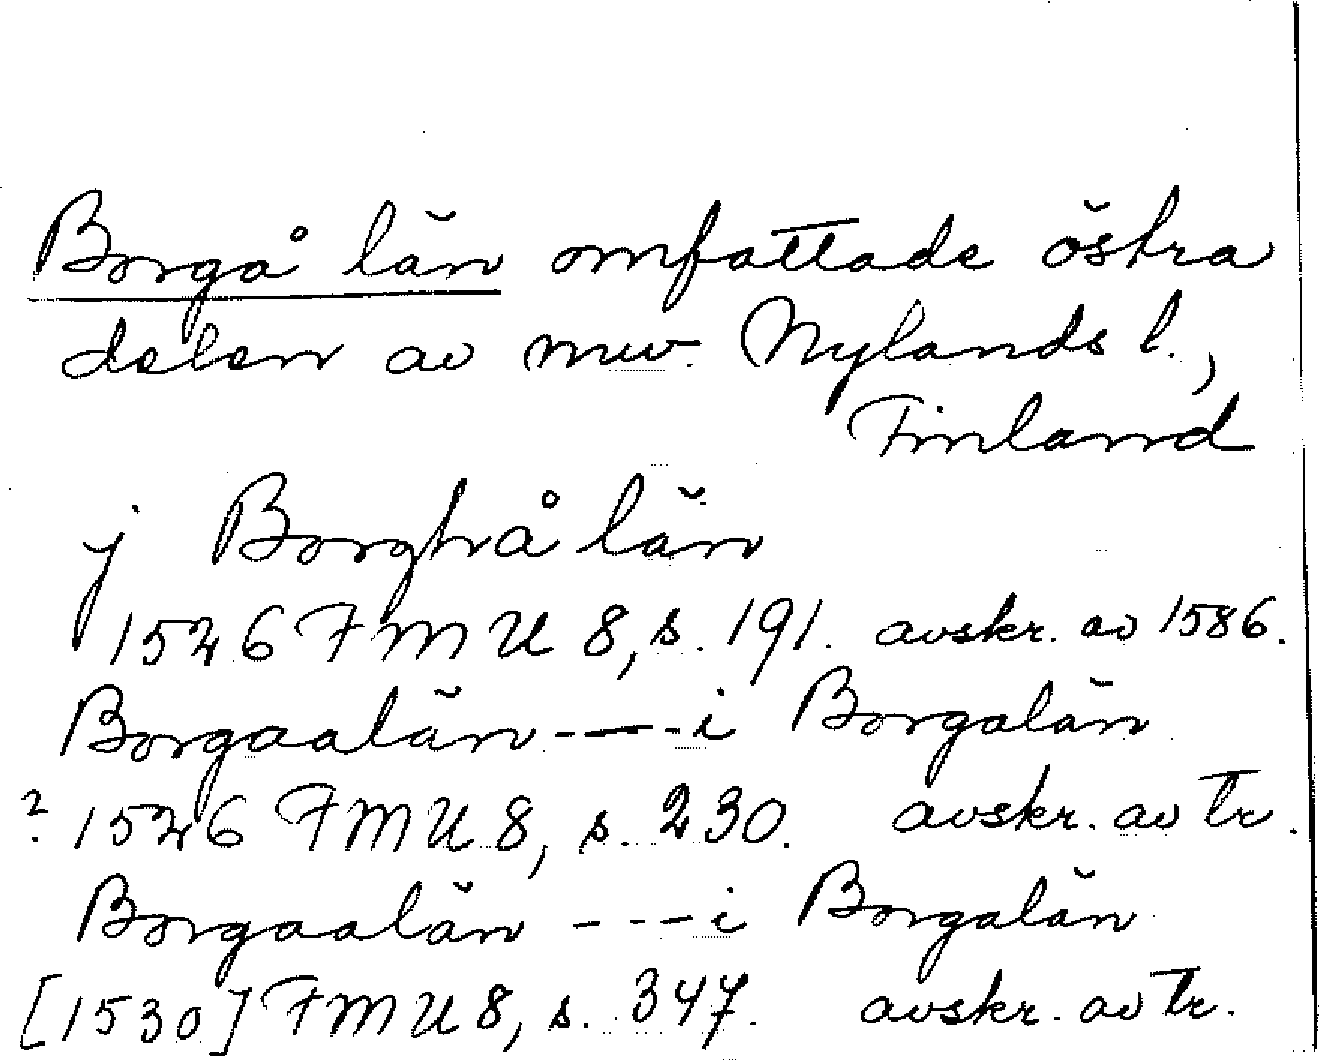 Borgå län omfattade östra
delen av nuv. Nylands l.,
Finland
j Borghå län
1526 FMU 8, s. 191. avskr. av 1586.
Borgaalän --- i Borgalän
? 1526 FMU 8, s. 230. avskr. av tr.
Borgaalän --- i Borgalän
[1530] FMU 8, s. 347. avskr. av tr.